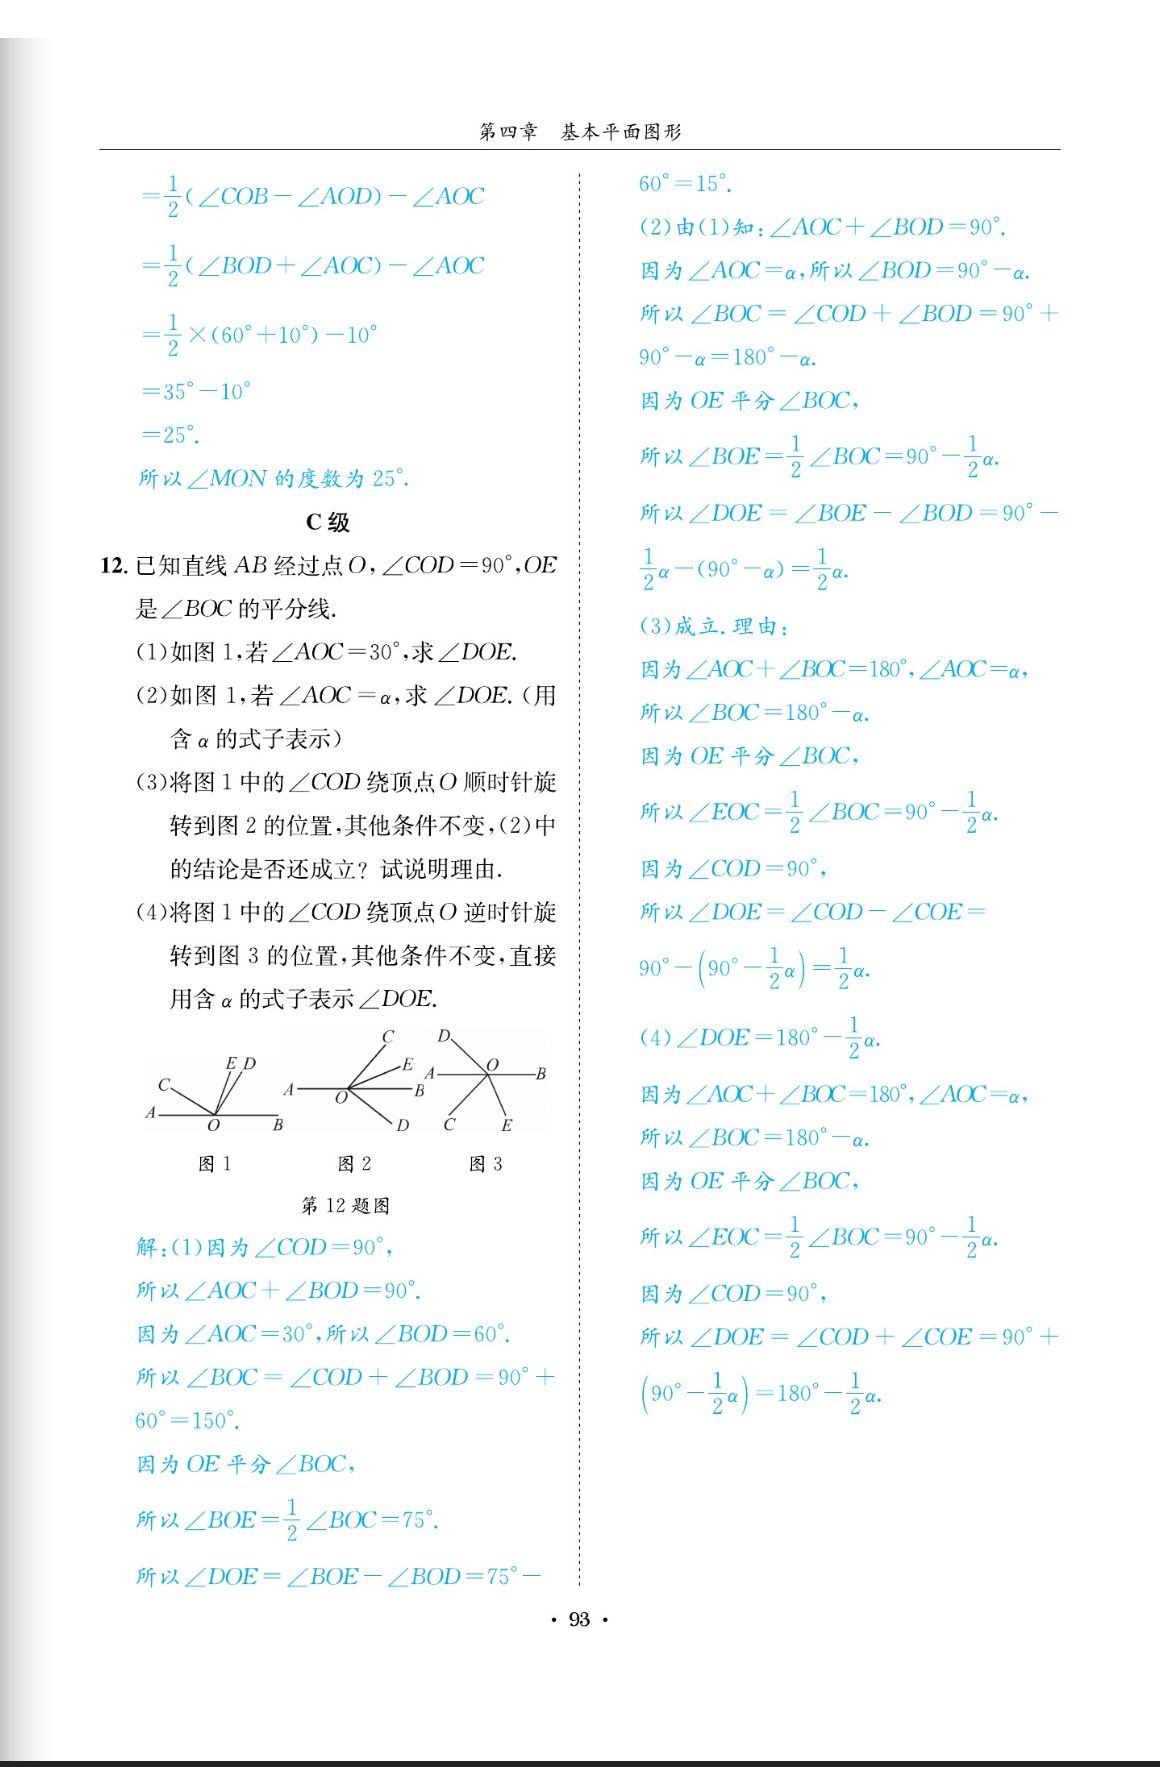 第四章 基本平面图形
=\frac{1}{2}(∠COB-∠AOD)-∠AOC
=\frac{1}{2}(∠BOD+∠AOC)-∠AOC
=\frac{1}{2}×(60°+10°)-10°
=35°-10°
=25°.
所以∠MON的度数为25°.
C级
12. 已知直线AB经过点O,∠COD=90°,OE
是∠BOC的平分线.
(1)如图1,若∠AOC=30°,求∠DOE.
(2)如图1,若∠AOC=α,求∠DOE.(用
含α的式子表示)
(3)将图1中的∠COD绕顶点O顺时针旋
转到图2的位置,其他条件不变,(2)中
的结论是否还成立?试说明理由.
(4)将图1中的∠COD绕顶点O逆时针旋
转到图3的位置,其他条件不变,直接
用含α的式子表示∠DOE.
C E D A O B
C E A O B D
D O A B C E
图1 图2 图3
第12题图
解:(1)因为∠COD=90°,
所以∠AOC+∠BOD=90°.
因为∠AOC=30°,所以∠BOD=60°.
所以∠BOC=∠COD+∠BOD=90°+
60°=150°.
因为OE平分∠BOC,
所以∠BOE=\frac{1}{2}∠BOC=75°.
所以∠DOE=∠BOE-∠BOD=75°-
60°=15°.
(2)由(1)知:∠AOC+∠BOD=90°.
因为∠AOC=α,所以∠BOD=90°-α.
所以∠BOC=∠COD+∠BOD=90°+
90°-α=180°-α.
因为OE平分∠BOC,
所以∠BOE=\frac{1}{2}∠BOC=90°-\frac{1}{2}α.
所以∠DOE=∠BOE-∠BOD=90°-
\frac{1}{2}α-(90°-α)=\frac{1}{2}α.
(3)成立.理由:
因为∠AOC+∠BOC=180°,∠AOC=α,
所以∠BOC=180°-α.
因为OE平分∠BOC,
所以∠EOC=\frac{1}{2}∠BOC=90°-\frac{1}{2}α.
因为∠COD=90°,
所以∠DOE=∠COD-∠COE=
90°-(90°-\frac{1}{2}α)=\frac{1}{2}α.
(4)∠DOE=180°-\frac{1}{2}α.
因为∠AOC+∠BOC=180°,∠AOC=α,
所以∠BOC=180°-α.
因为OE平分∠BOC,
所以∠EOC=\frac{1}{2}∠BOC=90°-\frac{1}{2}α.
因为∠COD=90°,
所以∠DOE=∠COD+∠COE=90°+
(90°-\frac{1}{2}α)=180°-\frac{1}{2}α.
· 93 ·